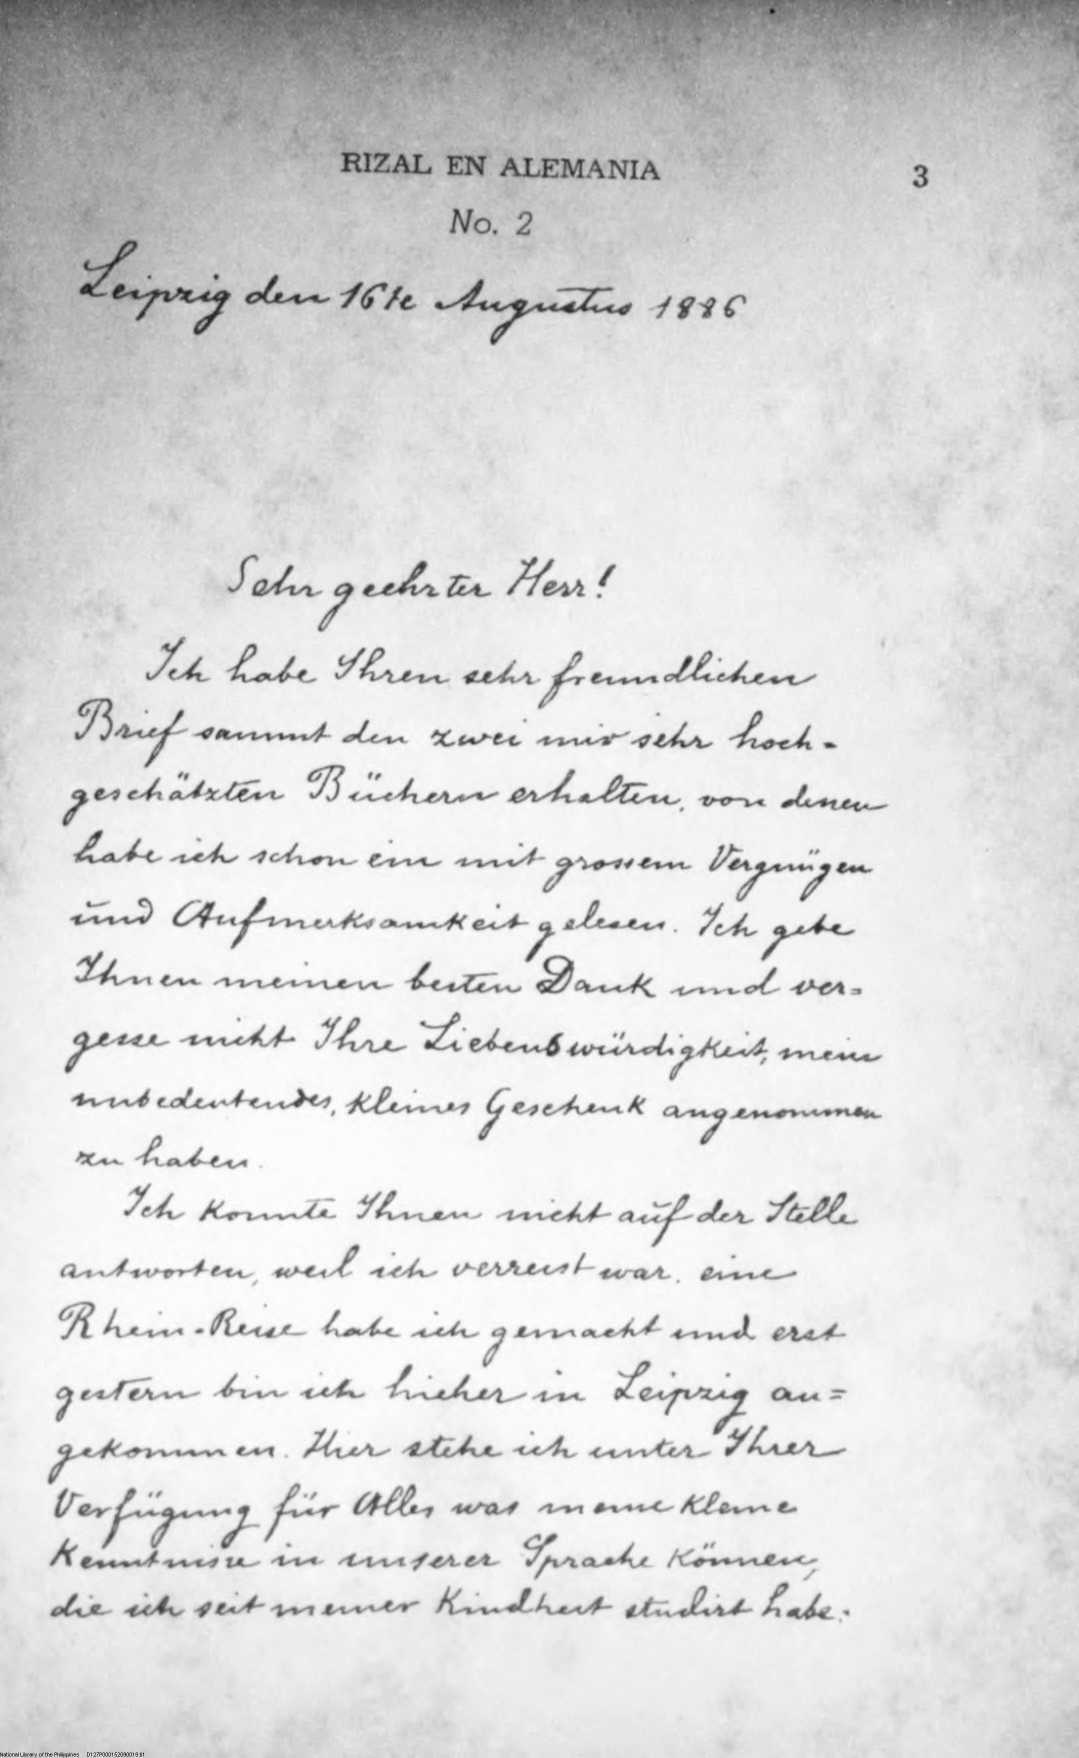 RIZAL EN ALEMANIA
3
No. 2
Leipzig den 16te Augustus 1886
Sehr geehrter Herr!
Ich habe Ihren sehr freundlichen
Brief sammt den zwei mir sehr hoch-
geschätzten Büchern erhalten, von denen
habe ich schon ein mit grossem Vergnügen
und Aufmerksamkeit gelesen. Ich gebe
Ihnen meinen besten Dank und ver=
gesse nicht Ihre Liebenswürdigkeit, mein
unbedeutendes, kleines Geschenk angenommen
zu haben.
Ich konnte Ihnen nicht auf der Stelle
antworten, weil ich verreist war. eine
Rhein-Reise habe ich gemacht und erst
gestern bin ich hieher in Leipzig an=
gekommen. Hier stehe ich unter Ihrer
Verfügung für Alles was meine kleine
Kenntnisse in unserer Sprache können,
die ich seit meiner Kindheit studirt habe.
National Library of the Philippines